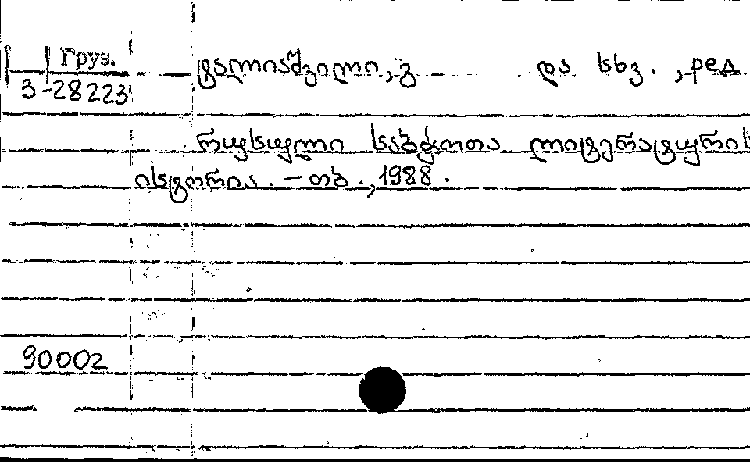 Груз.
ტალიაშვილი, გ. და სხვ., ред
3-28223
რუსული საბჭოთა ლიტერატურის
ისტორია. – თბ., 1988.
90002